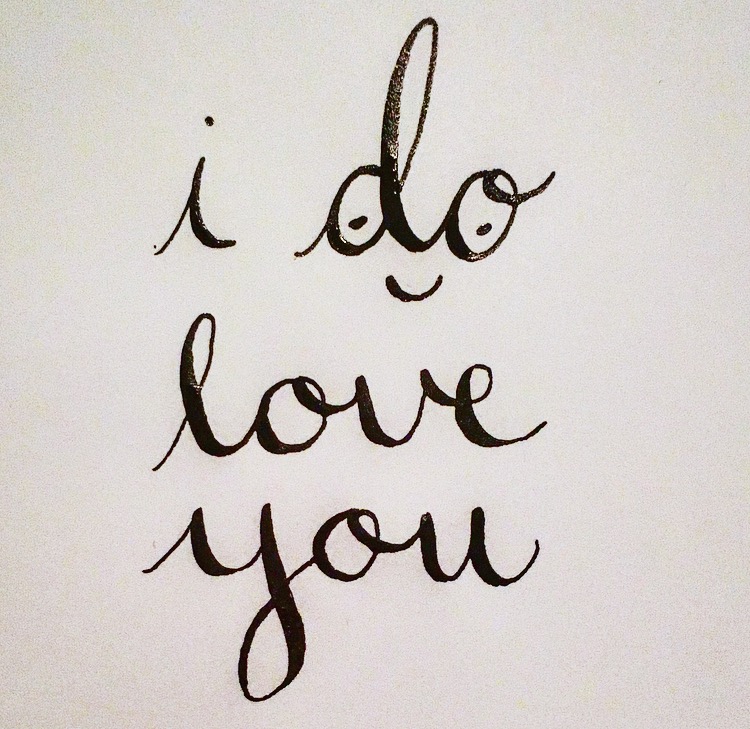 i do
love
you